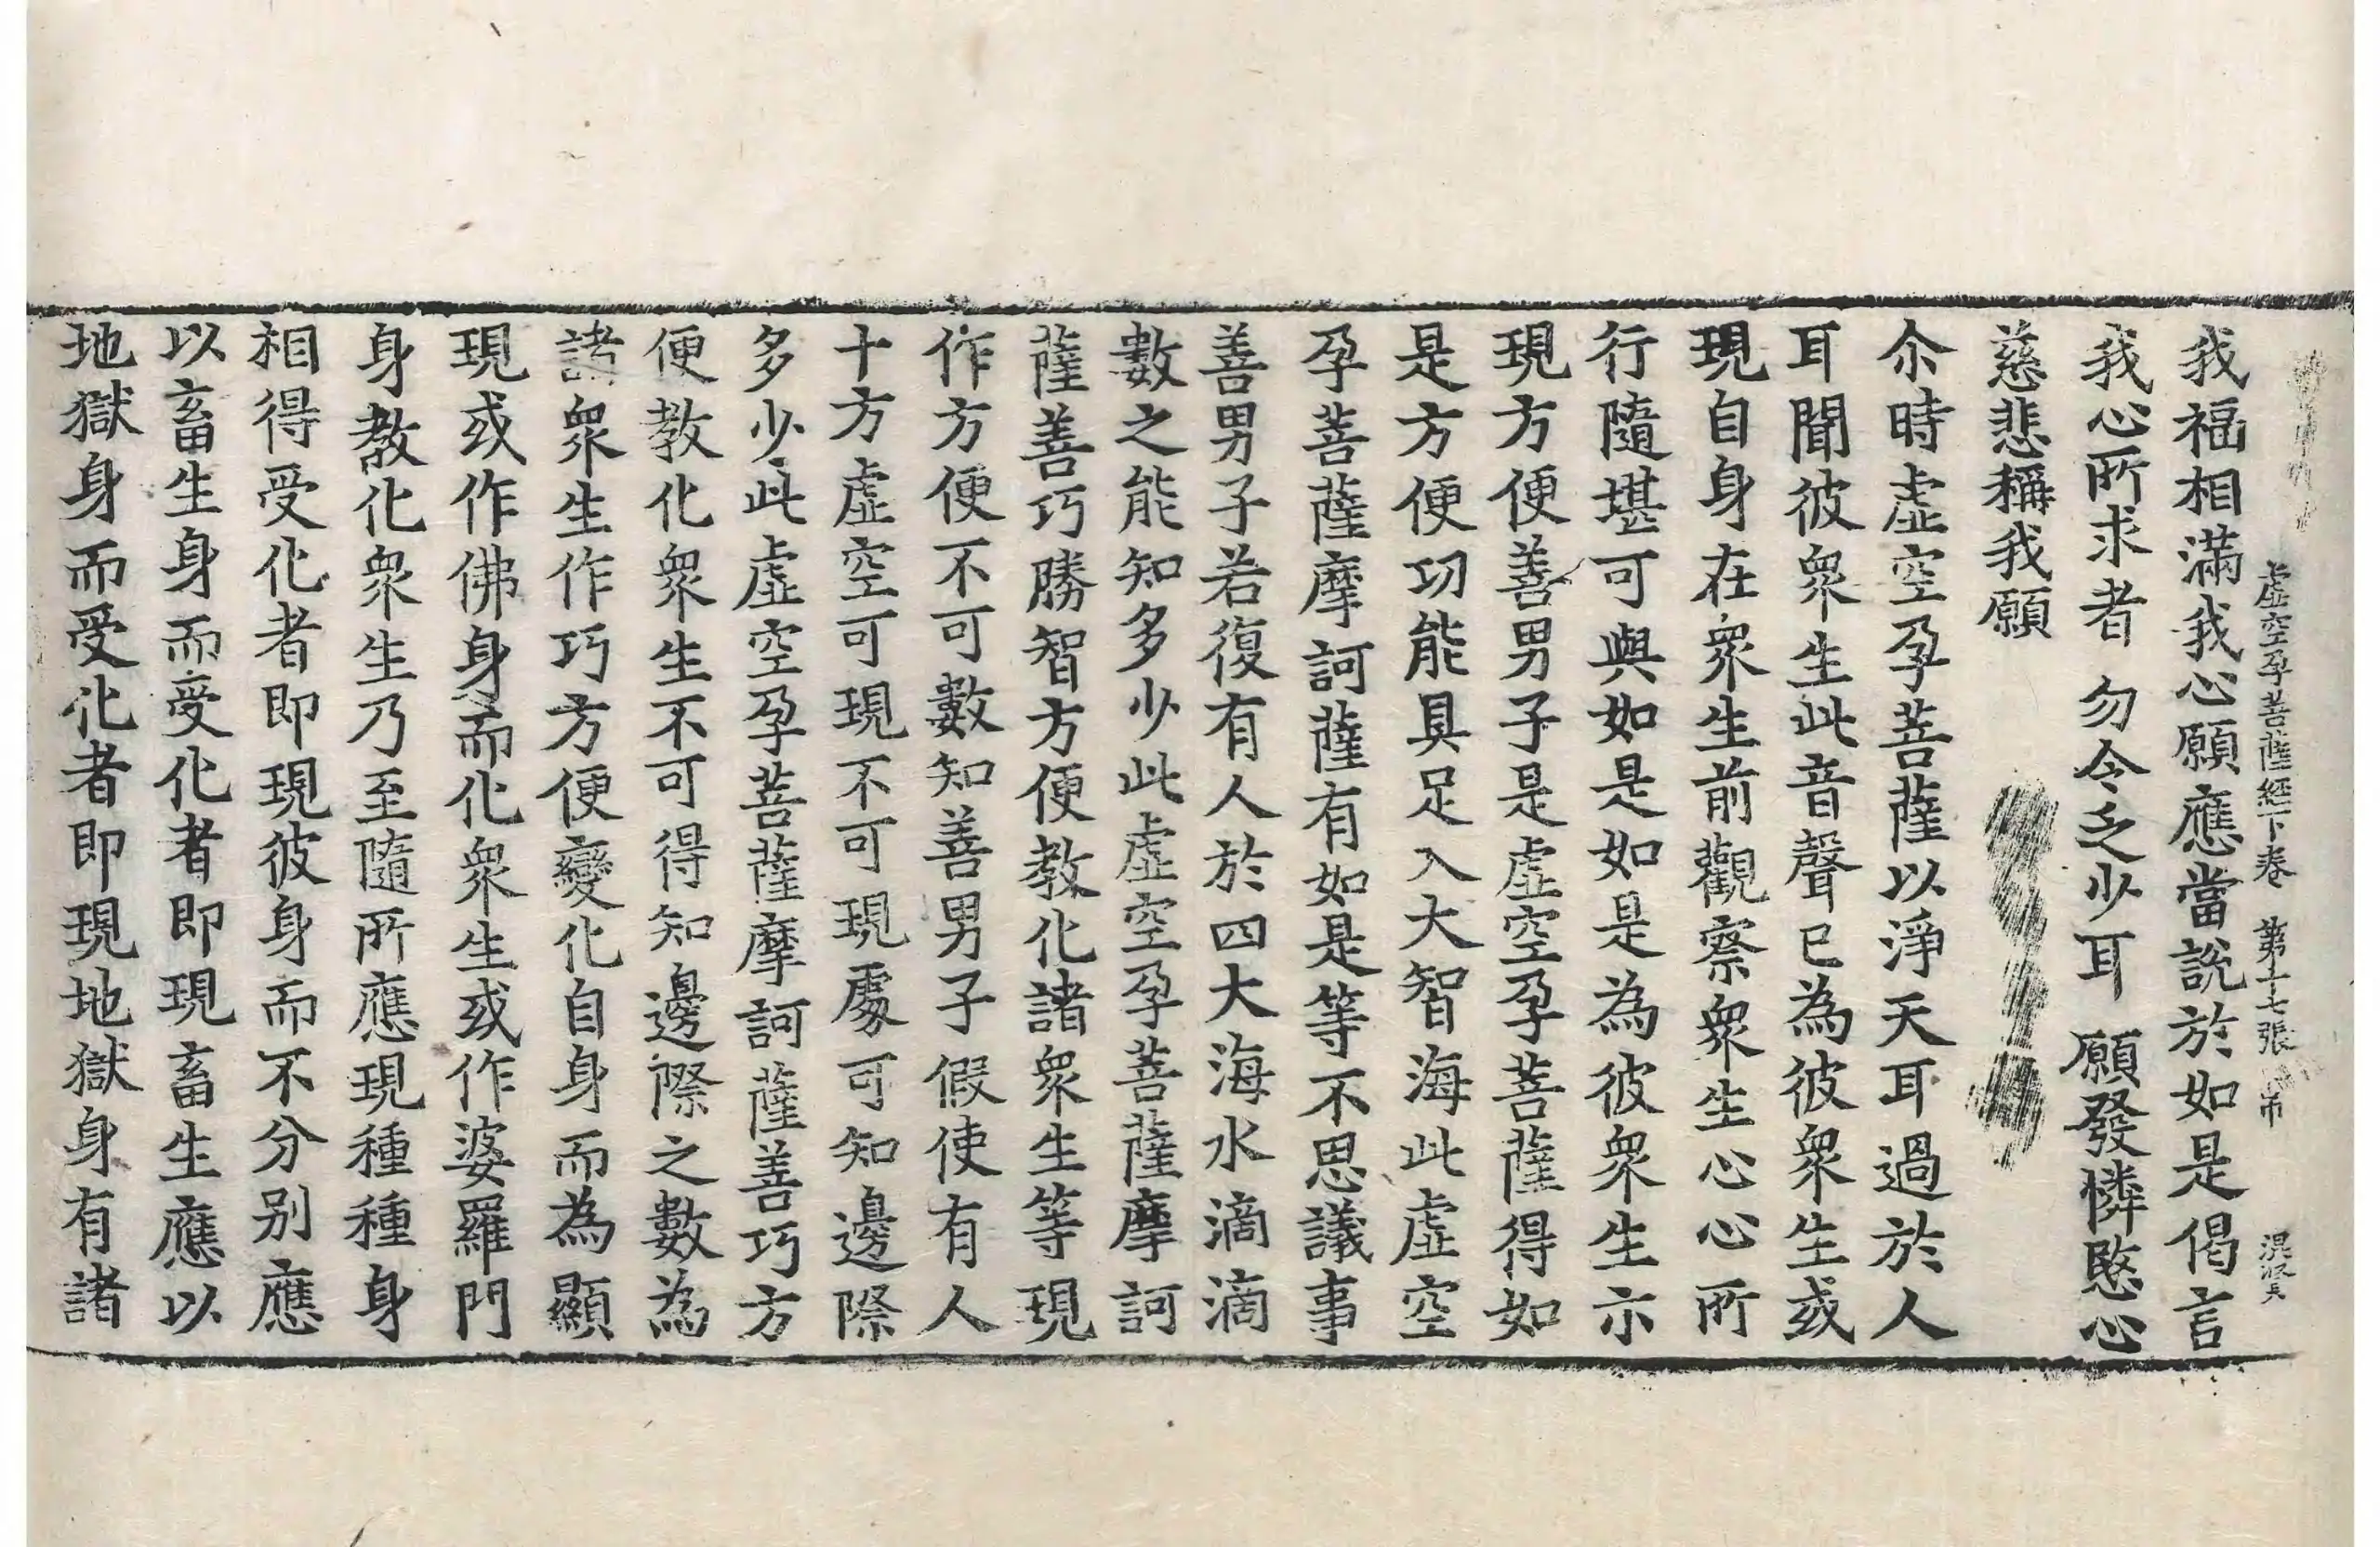 虛空孕菩薩經下卷　第十七張　帛
我福相滿我心願應當說於如是偈言
我心所求者　勿令乏少耳　願發憐愍心
慈悲稱我願
尒時虛空孕菩薩以淨天耳過於人
耳聞彼衆生此音聲已為彼衆生或
現自身在衆生前觀察衆生心心所
行隨堪可與如是如是為彼衆生示
現方便善男子是虛空孕菩薩得如
是方便功能具足入大智海此虛空
孕菩薩摩訶薩有如是等不思議事
善男子若復有人於四大海水滴滴
數之能知多少此虛空孕菩薩摩訶
薩善巧勝智方便教化諸衆生等現
作方便不可數知善男子假使有人
十方虛空可現不可現處可知邊際
多少此虛空孕菩薩摩訶薩善巧方
便教化衆生不可得知邊際之數為
諸衆生作巧方便變化自身而為顯
現或作佛身而化衆生或作婆羅門
身教化衆生乃至隨所應現種種身
相得受化者即現彼身而不分別應
以畜生身而受化者即現畜生應以
地獄身而受化者即現地獄身有諸